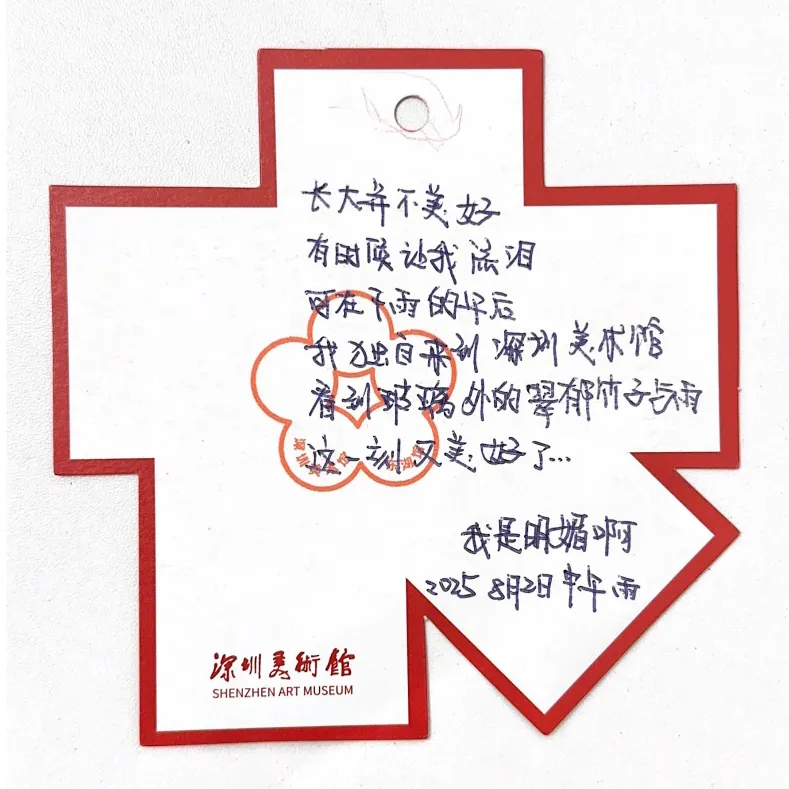 长大并不美好
有时候让我流泪
可在下雨的午后
我独自来到深圳美术馆
看到玻璃外的翠郁竹子与雨
这一刻又美好了...
我是明媚啊
2025 8月2日 中午 雨
深圳美術館
SHENZHEN ART MUSEUM